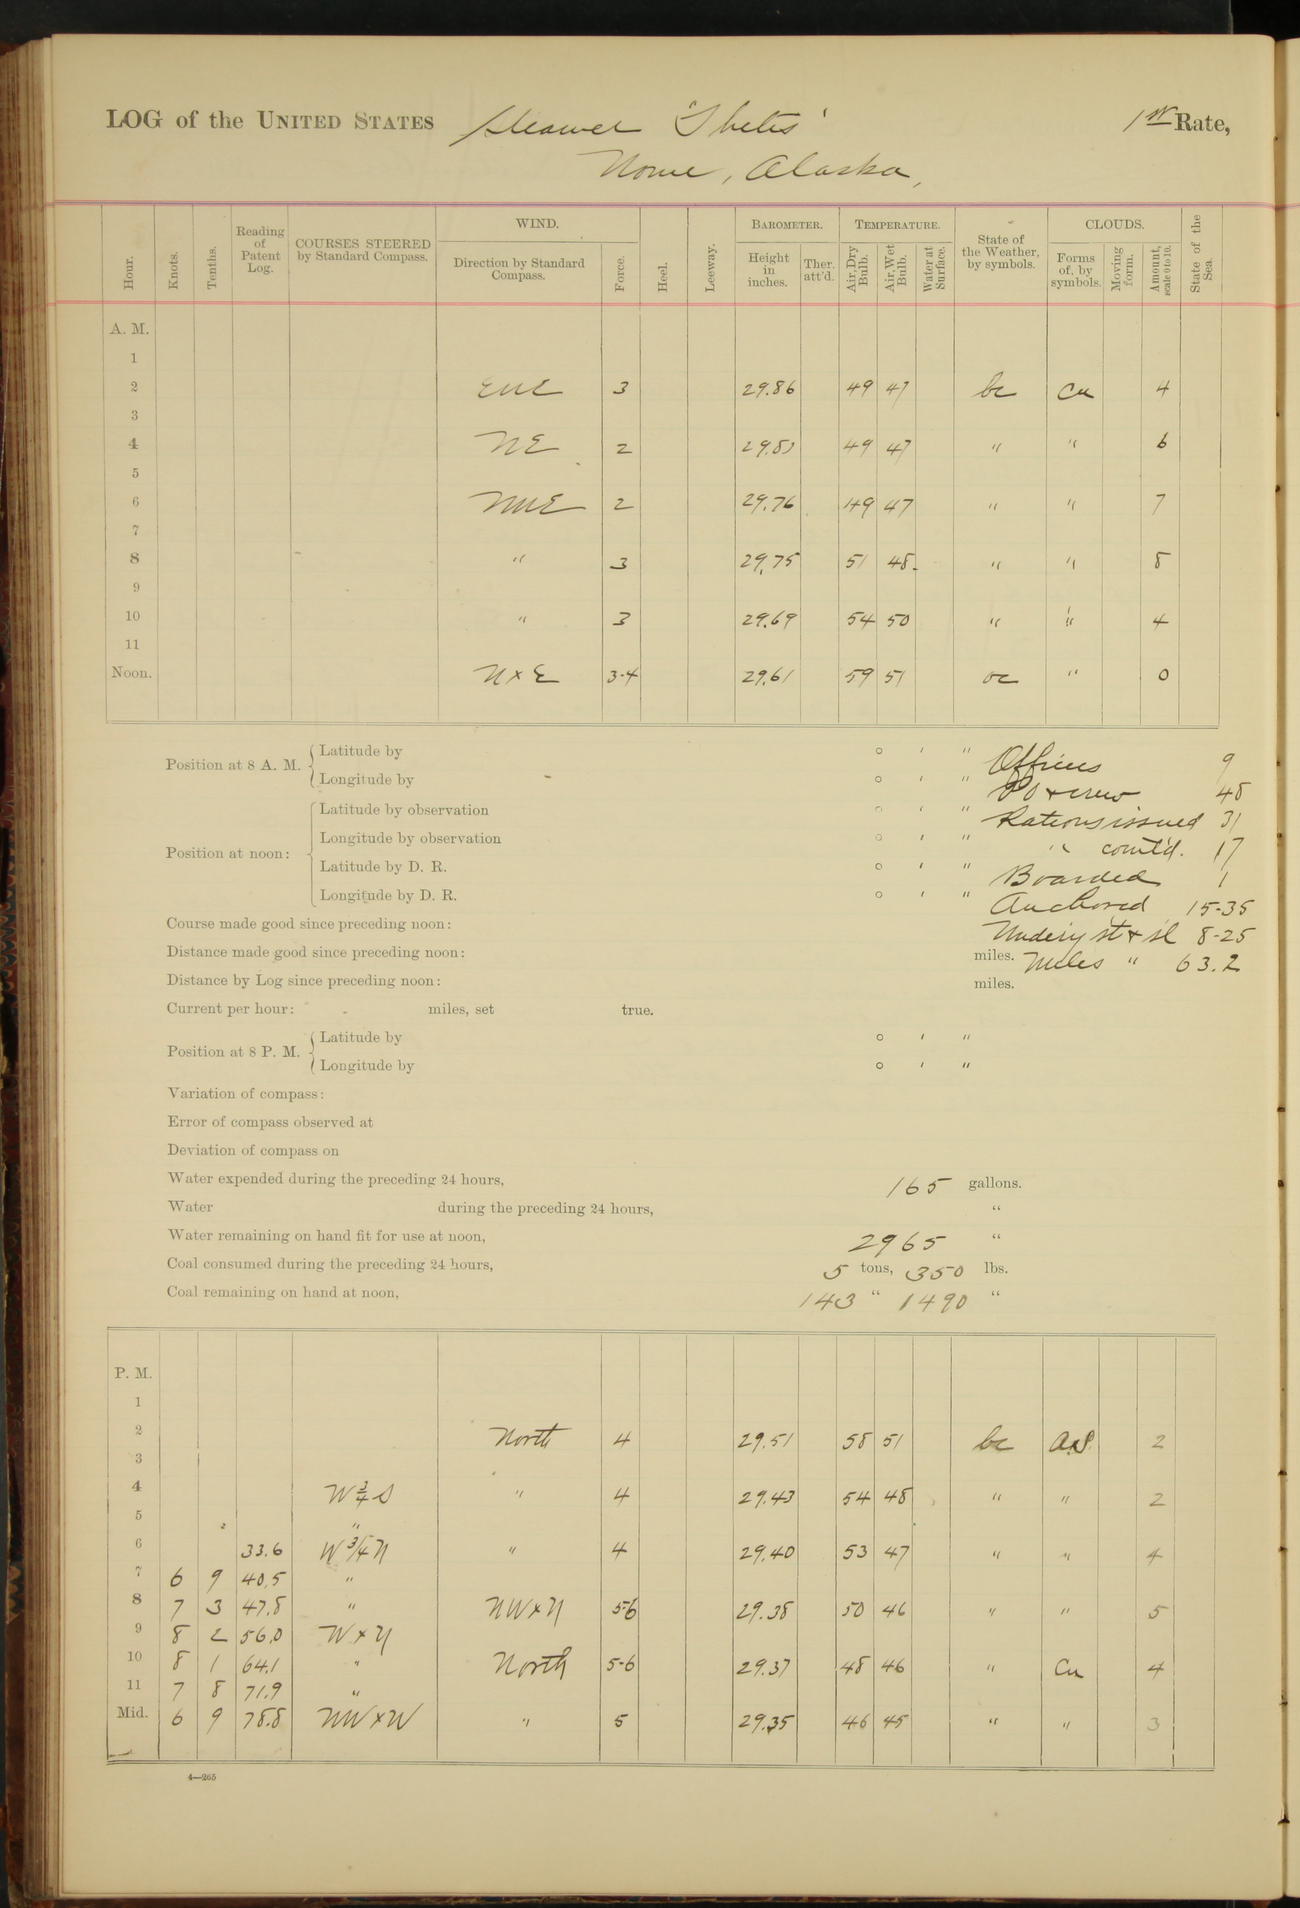 LOG of the UNITED STATES Steamer "Thetis" 1st Rate,
Nome, Alaska,
Hour. Knots. Tenths. Reading of Patent Log. COURSES STEERED by Standard Compass. WIND. Direction by Standard Compass. Force. Heel. Leeway. BAROMETER. Height in inches. Ther. att'd. TEMPERATURE. Air, Dry Bulb. Air, Wet Bulb. Water at Surface. State of the Weather, by symbols. CLOUDS. Forms of, by symbols. Moving form. Amount, scale 0 to 10. State of the Sea.
A. M.
1
2 ENE 3 29.86 49 47 bc Cu 4
3
4 NE 2 49 47 " " 6
5
6 NNE 2 29.76 49 47 " " 7
7
8 " 3 29.75 51 48 " " 8
9
10 " 3 29.69 54 50 " " 4
11
Noon. N x E 3-4 29.61 59 51 oc " 0
Position at 8 A. M. Latitude by ° ' " Officers 9
Longitude by ° ' " PO + crew 48
Position at noon: Latitude by observation ° ' " Rations issued 31
Longitude by observation ° ' " " comt'd. 17
Latitude by D. R. ° ' " Boarded 1
Longitude by D. R. ° ' " Anchored 15-35
Course made good since preceding noon: Underwy st + sl 8-25
Distance made good since preceding noon: miles. Miles " 63.2
Distance by Log since preceding noon: miles.
Current per hour: miles, set true.
Position at 8 P. M. Latitude by ° ' "
Longitude by ° ' "
Variation of compass:
Error of compass observed at
Deviation of compass on
Water expended during the preceding 24 hours, 165 gallons.
Water during the preceding 24 hours, "
Water remaining on hand fit for use at noon, 2965 "
Coal consumed during the preceding 24 hours, 5 tons, 350 lbs.
Coal remaining on hand at noon, 143 " 1490 "
P. M.
1
2 North 4 29.51 58 51 bc A.S. 2
3
4 W ¾ S " 4 29.43 54 48 " " 2
5 "
6 33.6 W ¾ N " 4 29.40 53 47 " " 4
7 6 9 40.5 "
8 7 3 47.8 " NW x N 5-6 29.38 50 46 " " 5
9 8 2 56.0 W x N
10 8 1 64.1 " North 5-6 29.37 48 46 " Cu 4
11 7 8 71.9 "
Mid. 6 9 78.8 NW x W " 5 29.35 46 45 " " 3
4—265